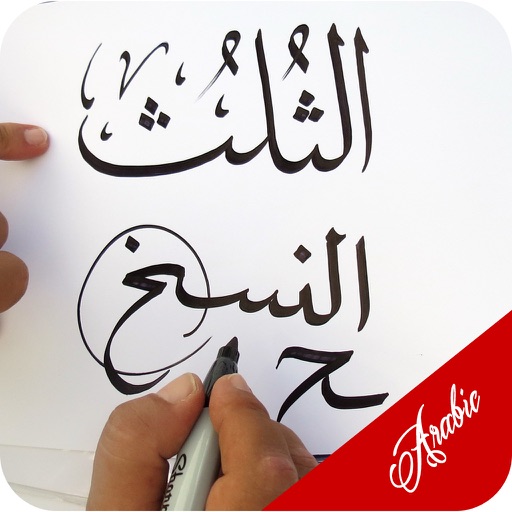 الثُلُث
النسخ
ح
Arabic